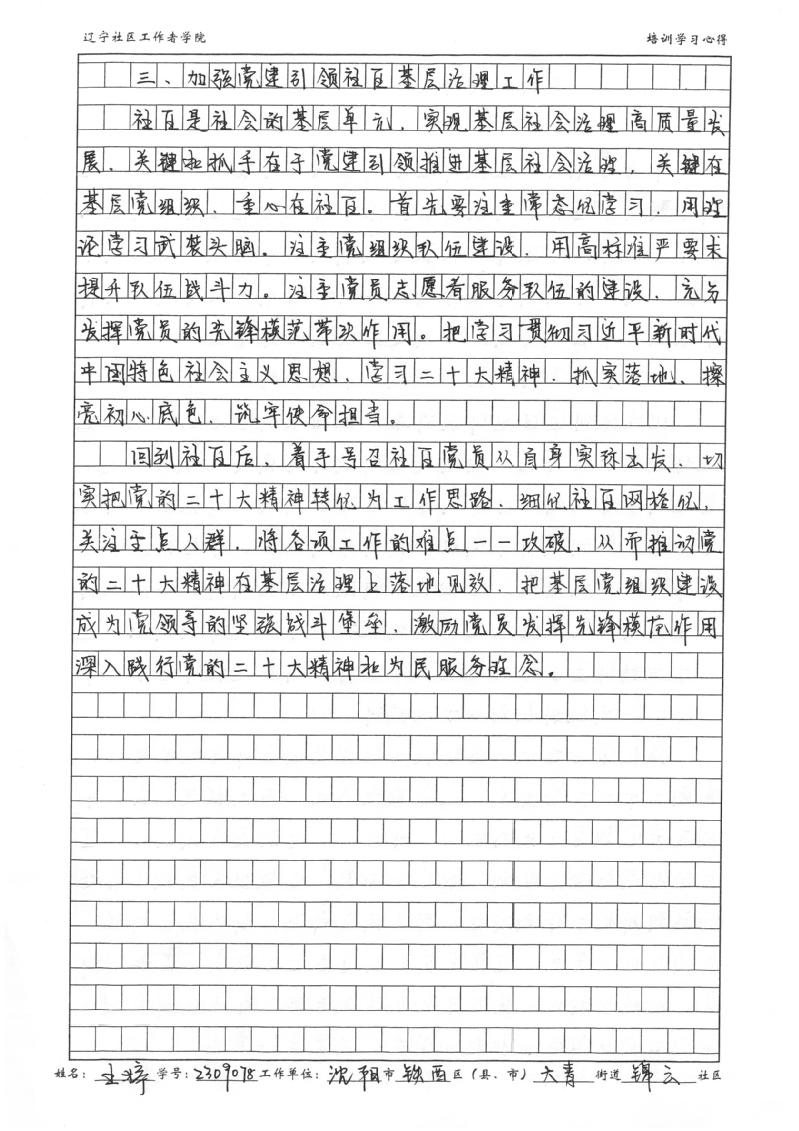 辽宁社区工作者学院 培训学习心得
三、加强党建引领社区基层治理工作
社区是社会的基层单元，实现基层社会治理高质量发
展，关键和抓手在于党建引领推进基层社会治理，关键在
基层党组织，重心在社区。首先要注重常态化学习，用理
论学习武装头脑。注重党组织队伍建设，用高标准严要求
提升队伍战斗力。注重党员志愿者服务队伍的建设，充分
发挥党员的先锋模范带头作用。把学习贯彻习近平新时代
中国特色社会主义思想、学习二十大精神，抓实落地、擦
亮初心底色，筑牢使命担当。
回到社区后，着手号召社区党员从自身实际出发，切
实把党的二十大精神转化为工作思路，细化社区网格化，
关注重点人群，将各项工作的难点一一攻破，从而推动党
的二十大精神在基层治理上落地见效，把基层党组织建设
成为党领导的坚强战斗堡垒，激励党员发挥先锋模范作用
深入践行党的二十大精神和为民服务理念。
姓名：王婷 学号：2309078 工作单位：沈阳市 铁西区（县、市） 大青 街道 锦云 社区